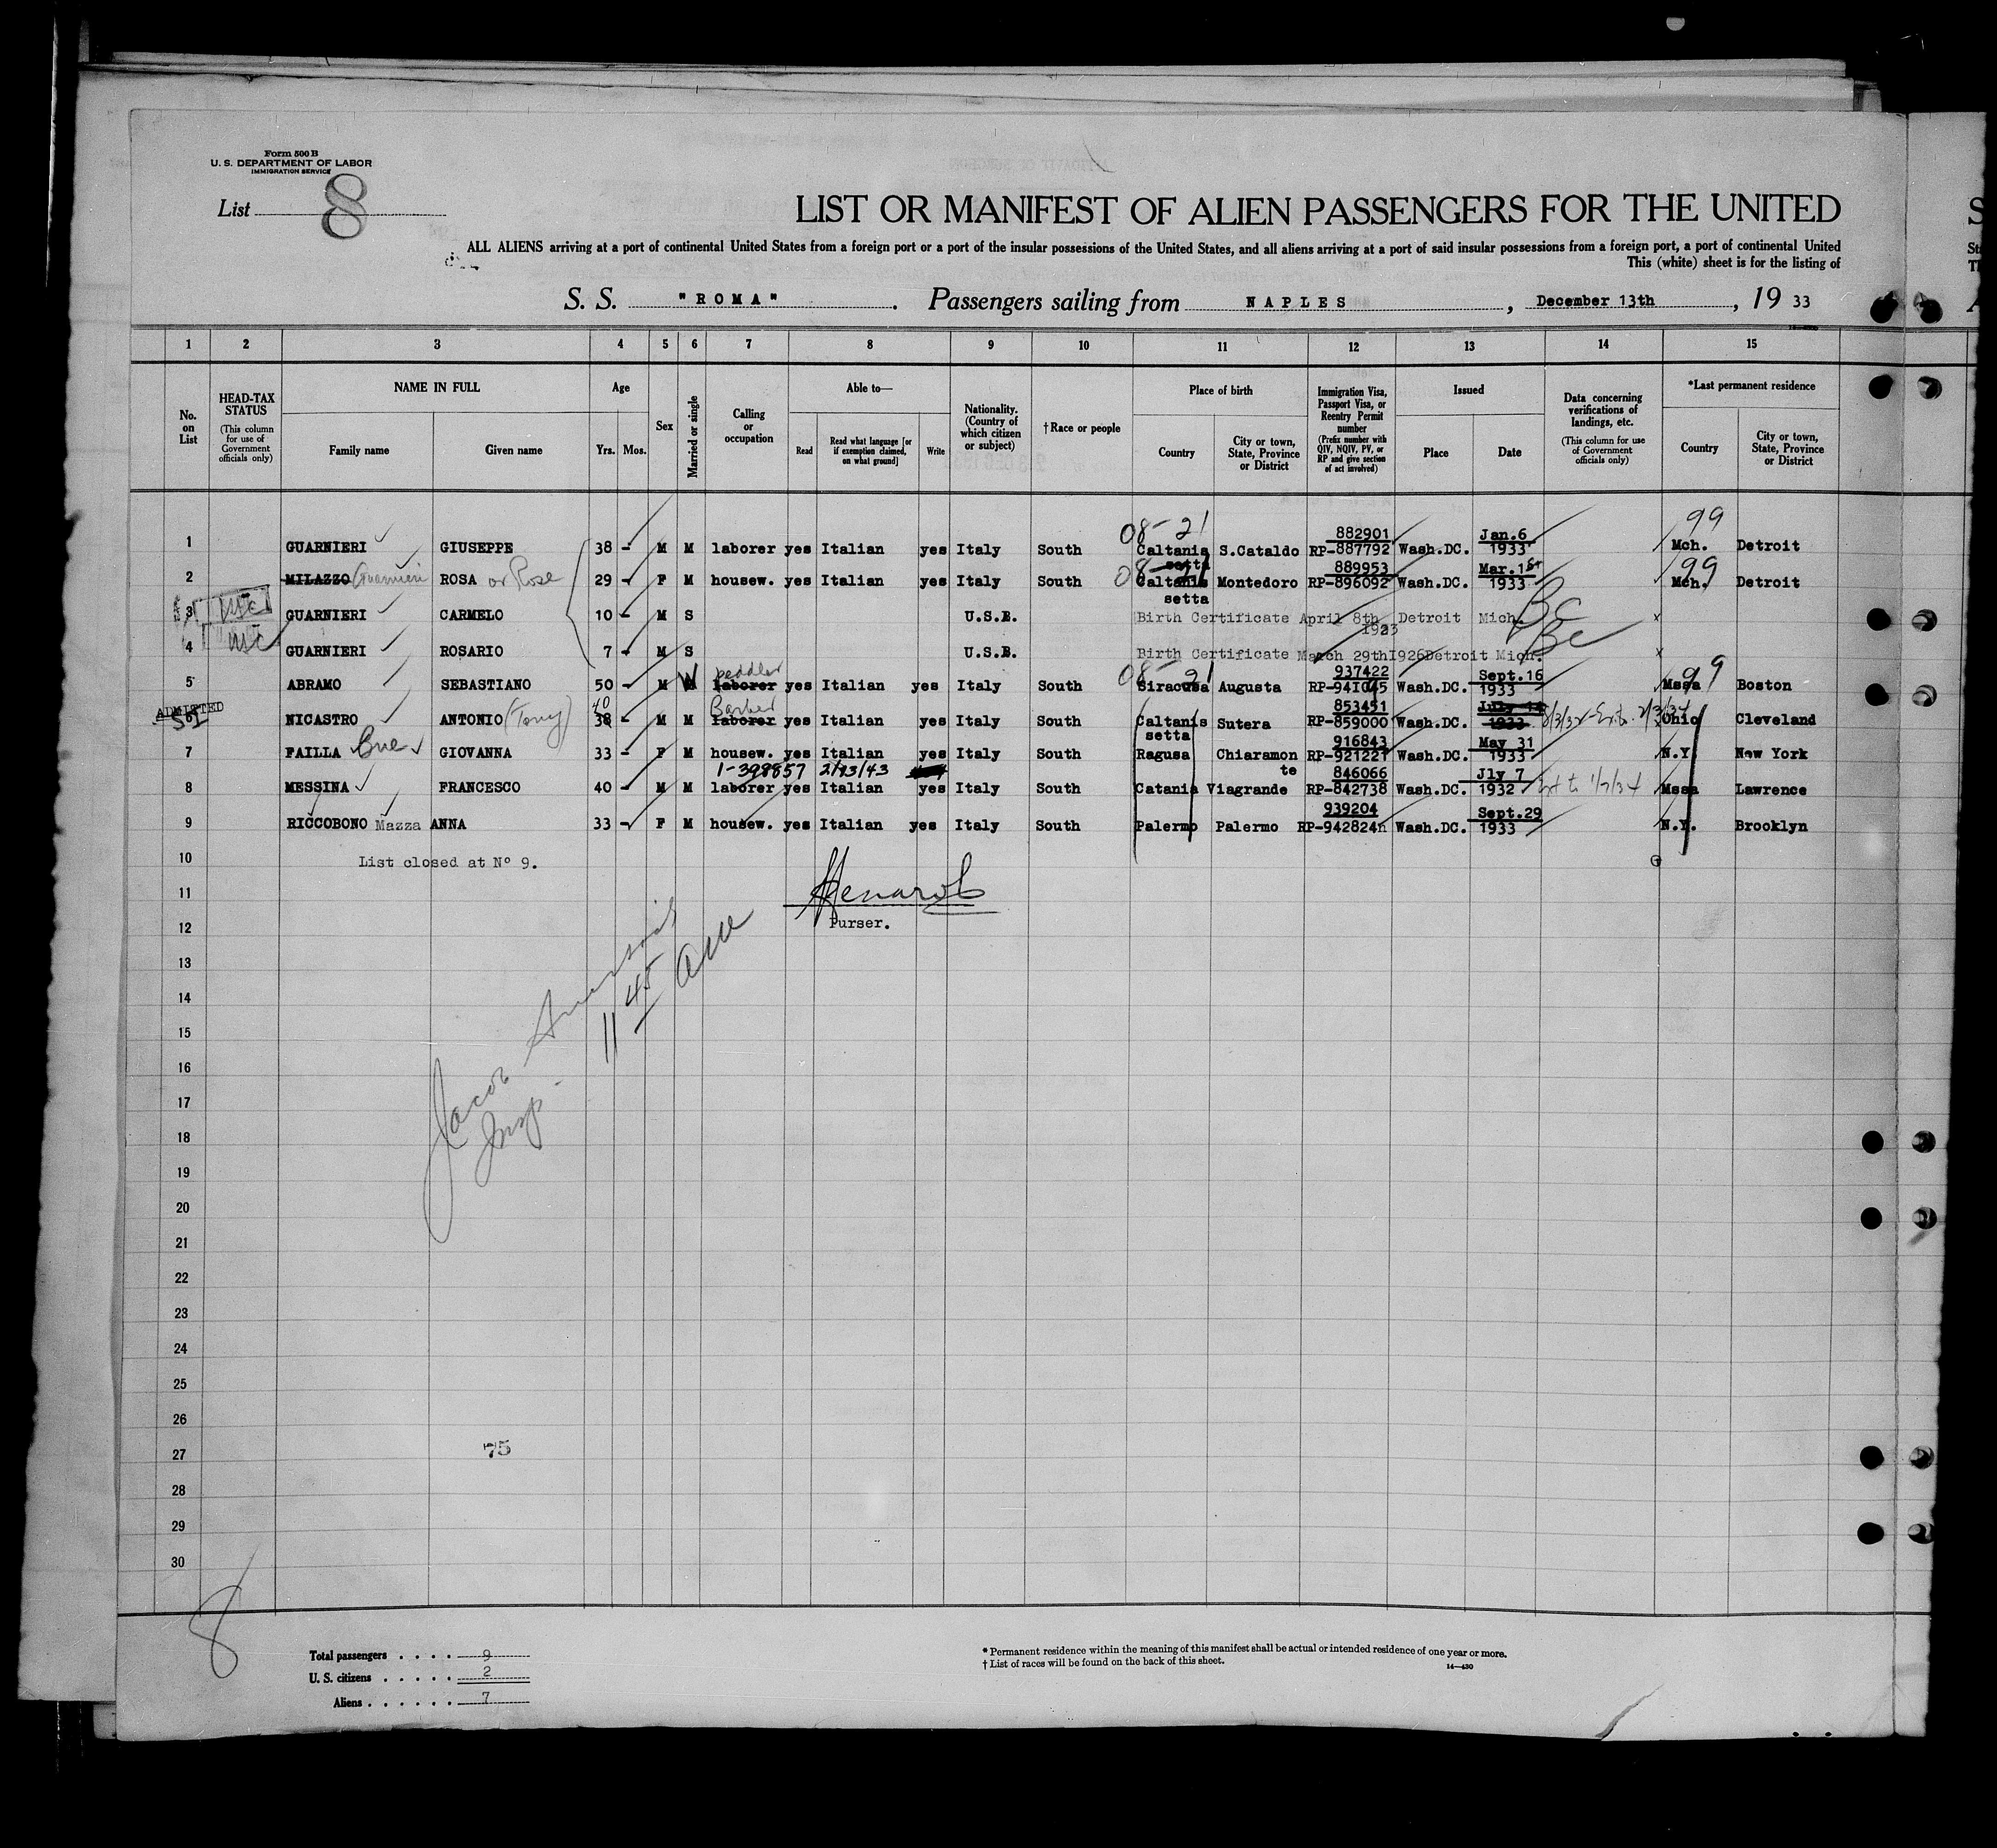 Form 500 B
U. S. DEPARTMENT OF LABOR
IMMIGRATION SERVICE
List 8
LIST OR MANIFEST OF ALIEN PASSENGERS FOR THE UNITED
ALL ALIENS arriving at a port of continental United States from a foreign port or a port of the insular possessions of the United States, and all aliens arriving at a port of said insular possessions from a foreign port, a port of continental United
This (white) sheet is for the listing of
S. S. "ROMA". Passengers sailing from NAPLES, December 13th, 19 33
1 2 3 4 5 6 7 8 9 10 11 12 13 14 15
No. on List
HEAD-TAX STATUS (This column for use of Government officials only)
NAME IN FULL
Family name Given name
Age
Yrs. Mos.
Sex
Married or single
Calling or occupation
Able to—
Read Read what language [or if exemption claimed, on what ground] Write
Nationality. (Country of which citizen or subject)
†Race or people
Place of birth
Country City or town, State, Province or District
Immigration Visa, Passport Visa, or Reentry Permit number (Prefix number with QIV, NQIV, PV, or RP and give section of act involved)
Issued
Place Date
Data concerning verifications of landings, etc. (This column for use of Government officials only)
*Last permanent residence
Country City or town, State, Province or District
08-21 882901 Jan.6 99
1 GUARNIERI GIUSEPPE 38 - M M laborer yes Italian yes Italy South Caltanis setta S.Cataldo RP-887792 Wash.DC. 1933 Mch. Detroit
889953 Mar.1st 99
2 MILAZZO Guarnieri ROSA or Rose 29 - F M housew. yes Italian yes Italy South Caltanis setta Montedoro RP-896092 Wash.DC. 1933 Mch. Detroit
3 GUARNIERI CARMELO 10 - M S U.S.B. Birth Certificate April 8th 1923 Detroit Mich. BC x
4 GUARNIERI ROSARIO 7 - M S U.S.B. Birth Certificate March 29th1926Detroit Mich. BC x
peddler 937422 Sept.16 99
5 ABRAMO SEBASTIANO 50 - M W laborer yes Italian yes Italy South Siracusa Augusta RP-941045 Wash.DC. 1933 Mssa Boston
ADMITTED 40 Barber 853451 July 14
NICASTRO ANTONIO (Tony) 38 - M M laborer yes Italian yes Italy South Caltanis setta Sutera RP-859000 Wash.DC. 1933 Ohio Cleveland
916843 May 31
7 FAILLA GIOVANNA 33 - F M housew. yes Italian yes Italy South Ragusa Chiaramon te RP-921221 Wash.DC. 1933 N.Y. New York
1-398857 2/13/43 846066 Jly 7
8 MESSINA FRANCESCO 40 - M M laborer yes Italian yes Italy South Catania Viagrande RP-842738 Wash.DC. 1932 Ext to 1/7/34 Mssa Lawrence
939204 Sept.29
9 RICCOBONO Mazza ANNA 33 - F M housew. yes Italian yes Italy South Palermo Palermo RP-942824n Wash.DC. 1933 N.Y. Brooklyn
10 List closed at Nº 9.
11
12 Purser.
13
14
15
16
17
18
19
20
21
22
23
24
25
26
27
28
29
30
Jacob
Insp.
11 45 AM
75
8
Total passengers . . . . 9
U. S. citizens . . . . . 2
Aliens . . . . . . 7
* Permanent residence within the meaning of this manifest shall be actual or intended residence of one year or more.
† List of races will be found on the back of this sheet.
14—430